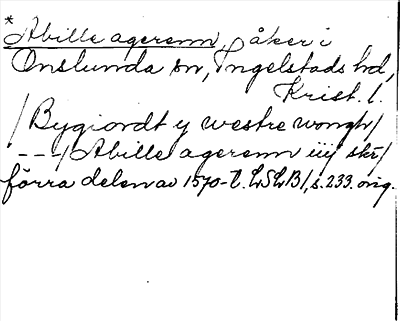 * Abille agerenn, åker i
Onslunda sn, Ingelstads hd,
Krist. l.
/ Bygiordt y westre wongh /
---/ Abille agerenn iiij skr /
förra delen av 1570-t. LSLB, s. 233. orig.